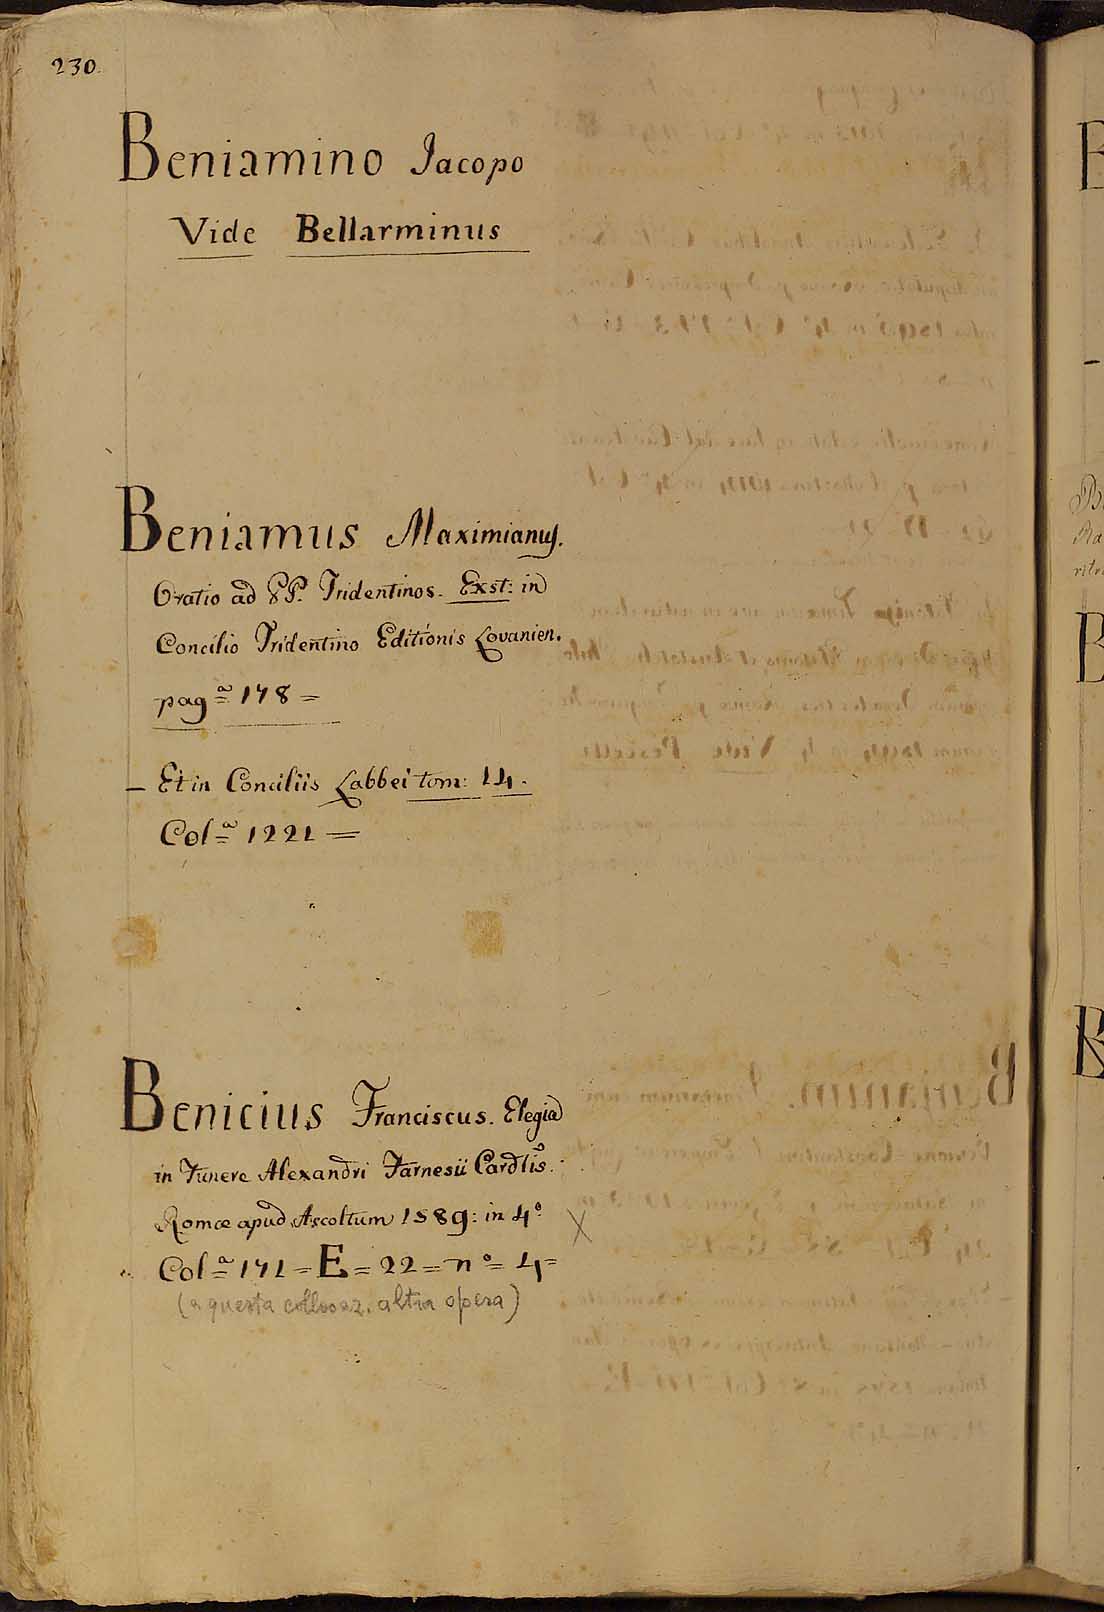 230.
Beniamino Iacopo
Vide Bellarminus
Beniamus Maximianus.
Oratio ad PP. Tridentinos. Exst: in
Concilio Tridentino Editionis Lovanien.
pagª 178 =
- Et in Conciliis Labbei tom: 14.
Colª 1221 =
Benicius Franciscus. Elegia
in Funere Alexandri Farnesii Cardlis.
Romæ apud Ascoltum 1589: in 4º X
Colª 171 = E = 22 = nº = 4 =
(a questa collocaz. altra opera)